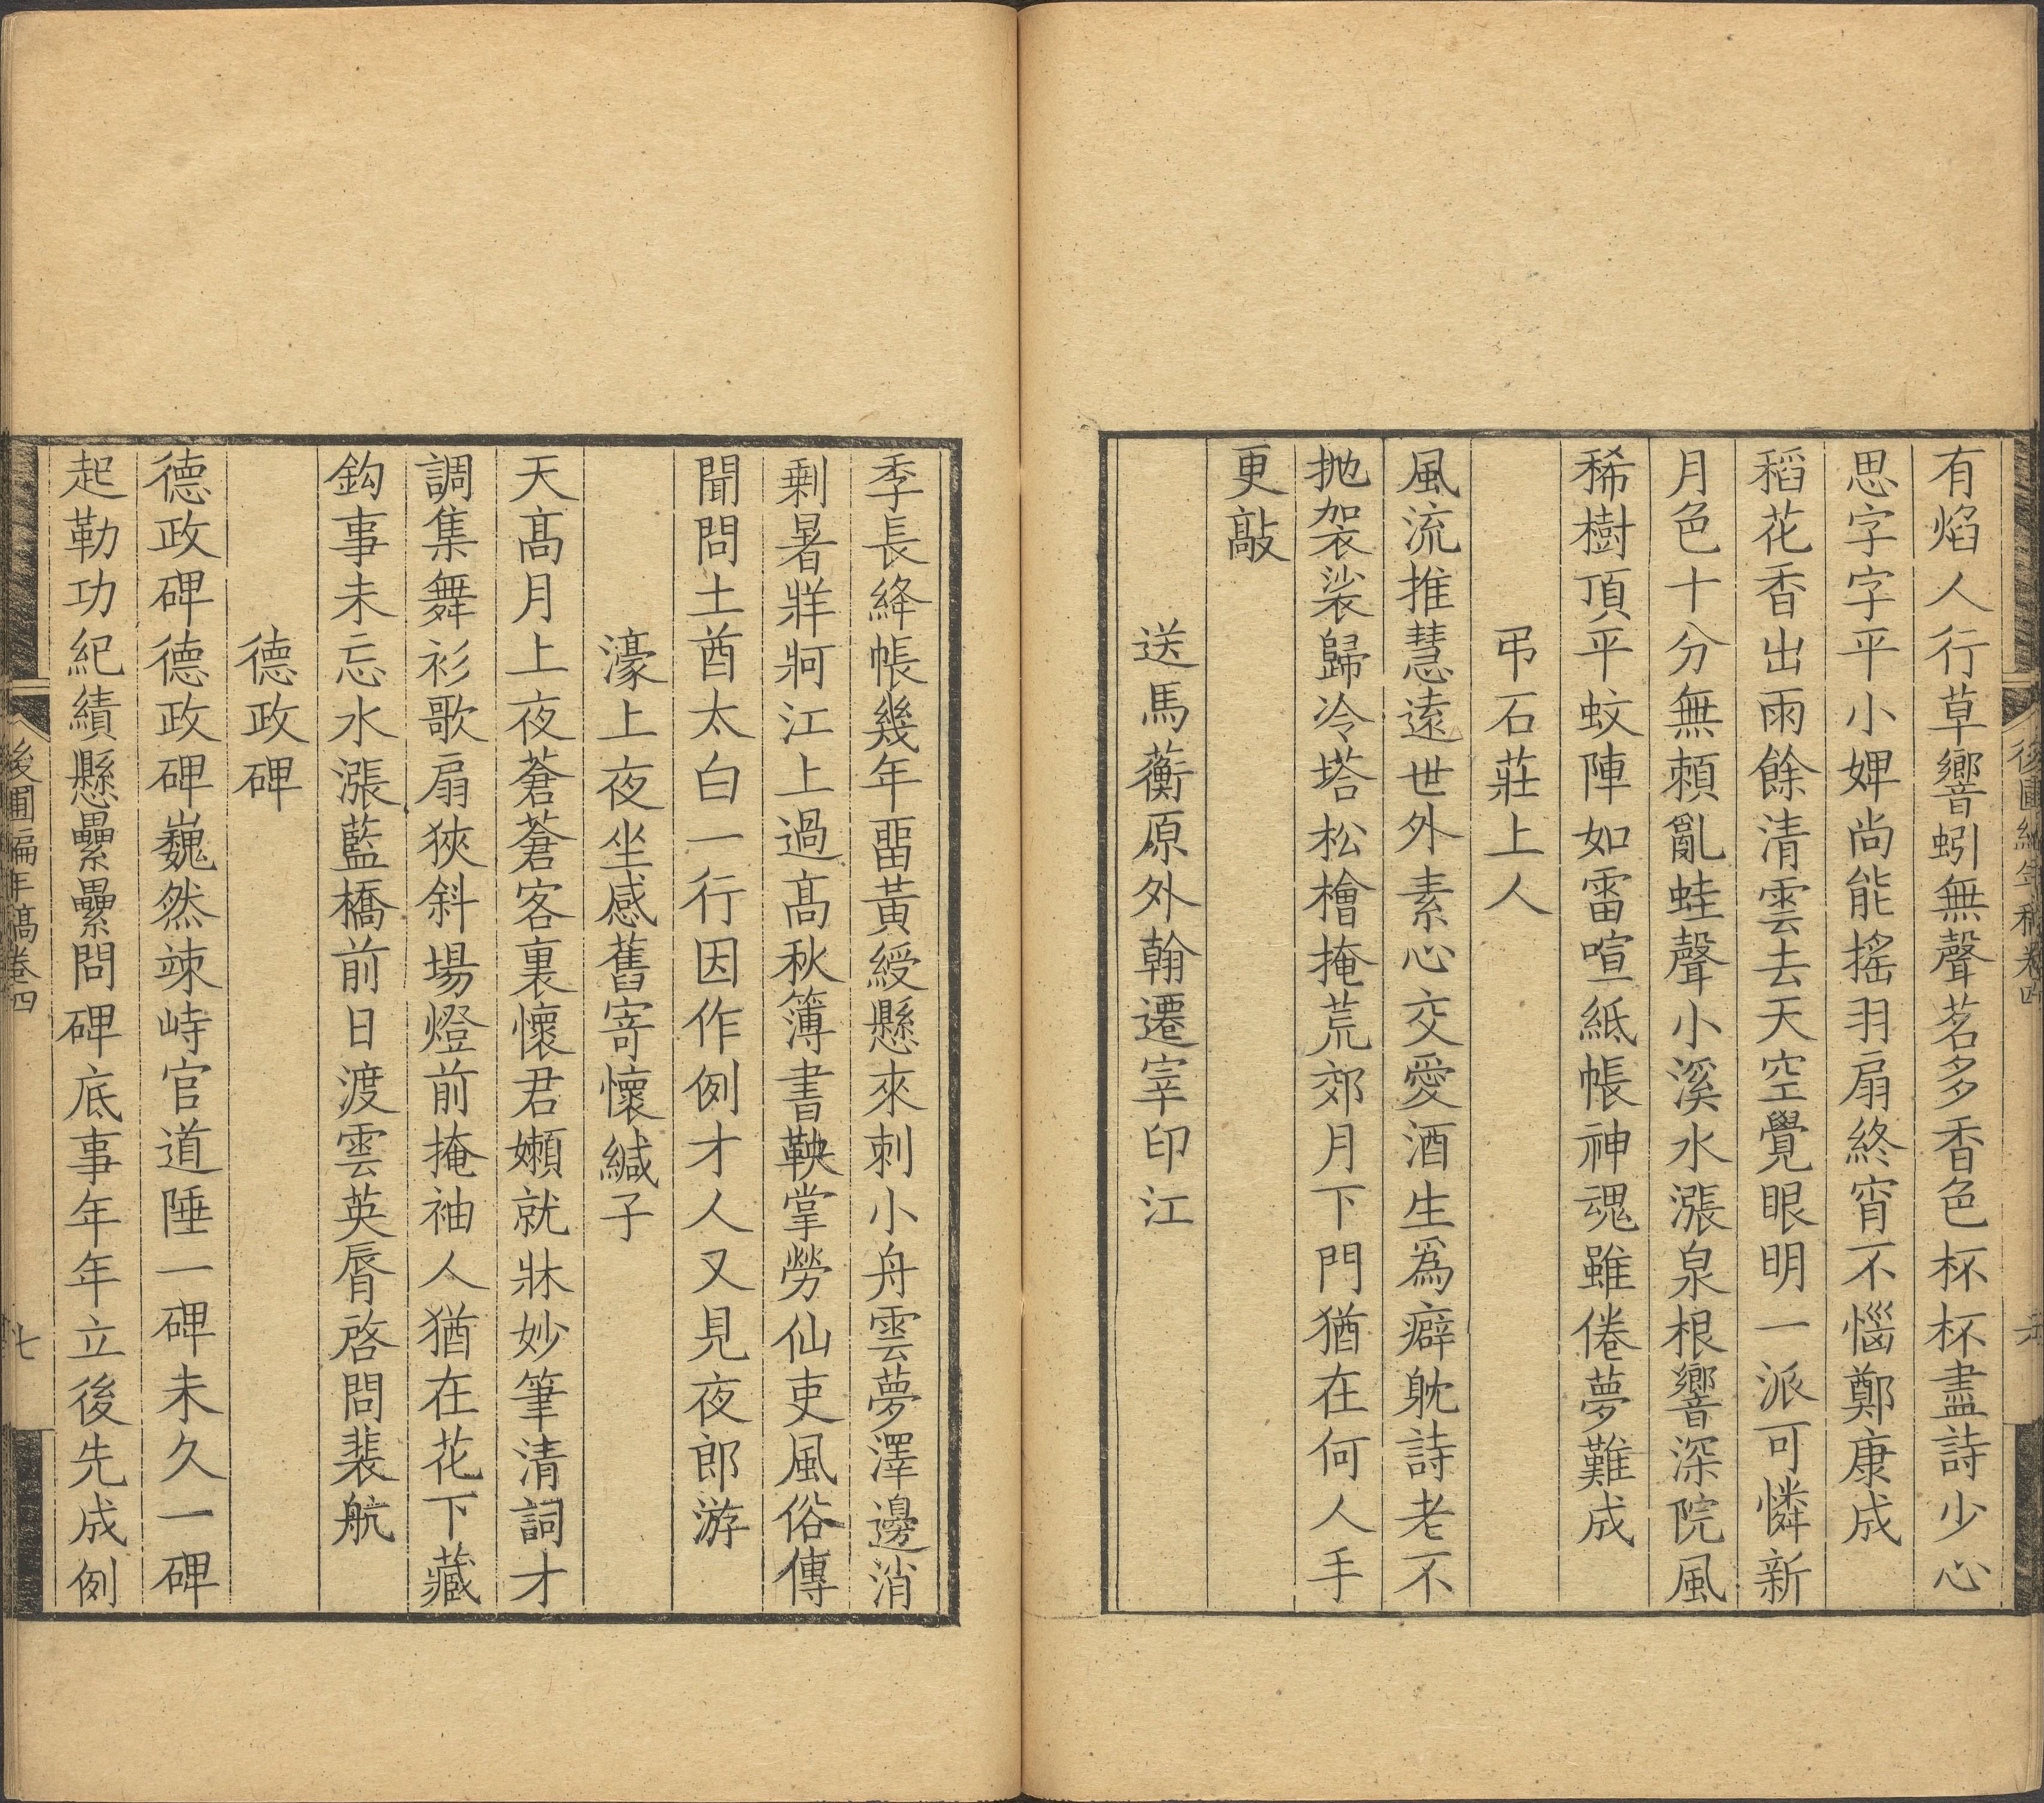 有焰人行草響蚓無聲茗多香色杯杯盡詩少心
思字字平小婢尚能搖羽扇終宵不惱鄭康成
稻花香出雨餘清雲去天空覺眼明一派可憐新
月色十分無賴亂蛙聲小溪水漲泉根響深院風
稀樹頂平蚊陣如雷喧紙帳神魂雖倦夢難成
弔石莊上人
風流推慧遠世外素心交愛酒生爲癖躭詩老不
拋袈裟歸冷塔松檜掩荒郊月下門猶在何人手
更敲
送馬蘅原外翰遷宰印江
季長絳帳幾年畱黃綬懸來刺小舟雲夢澤邊消
剩暑牂牁江上過高秋簿書鞅掌勞仙吏風俗傳
聞問土酋太白一行因作例才人又見夜郎游
濠上夜坐感舊寄懷緘子
天高月上夜蒼蒼客裏懷君嬾就牀妙筆清詞才
調集舞衫歌扇狹斜場燈前掩袖人猶在花下藏
鈎事未忘水漲藍橋前日渡雲英脣啓問裴航
德政碑
德政碑德政碑巍然竦峙官道陲一碑未久一碑
起勒功紀績懸纍纍問碑底事年年立後先成例
後圃編年稿卷四
七